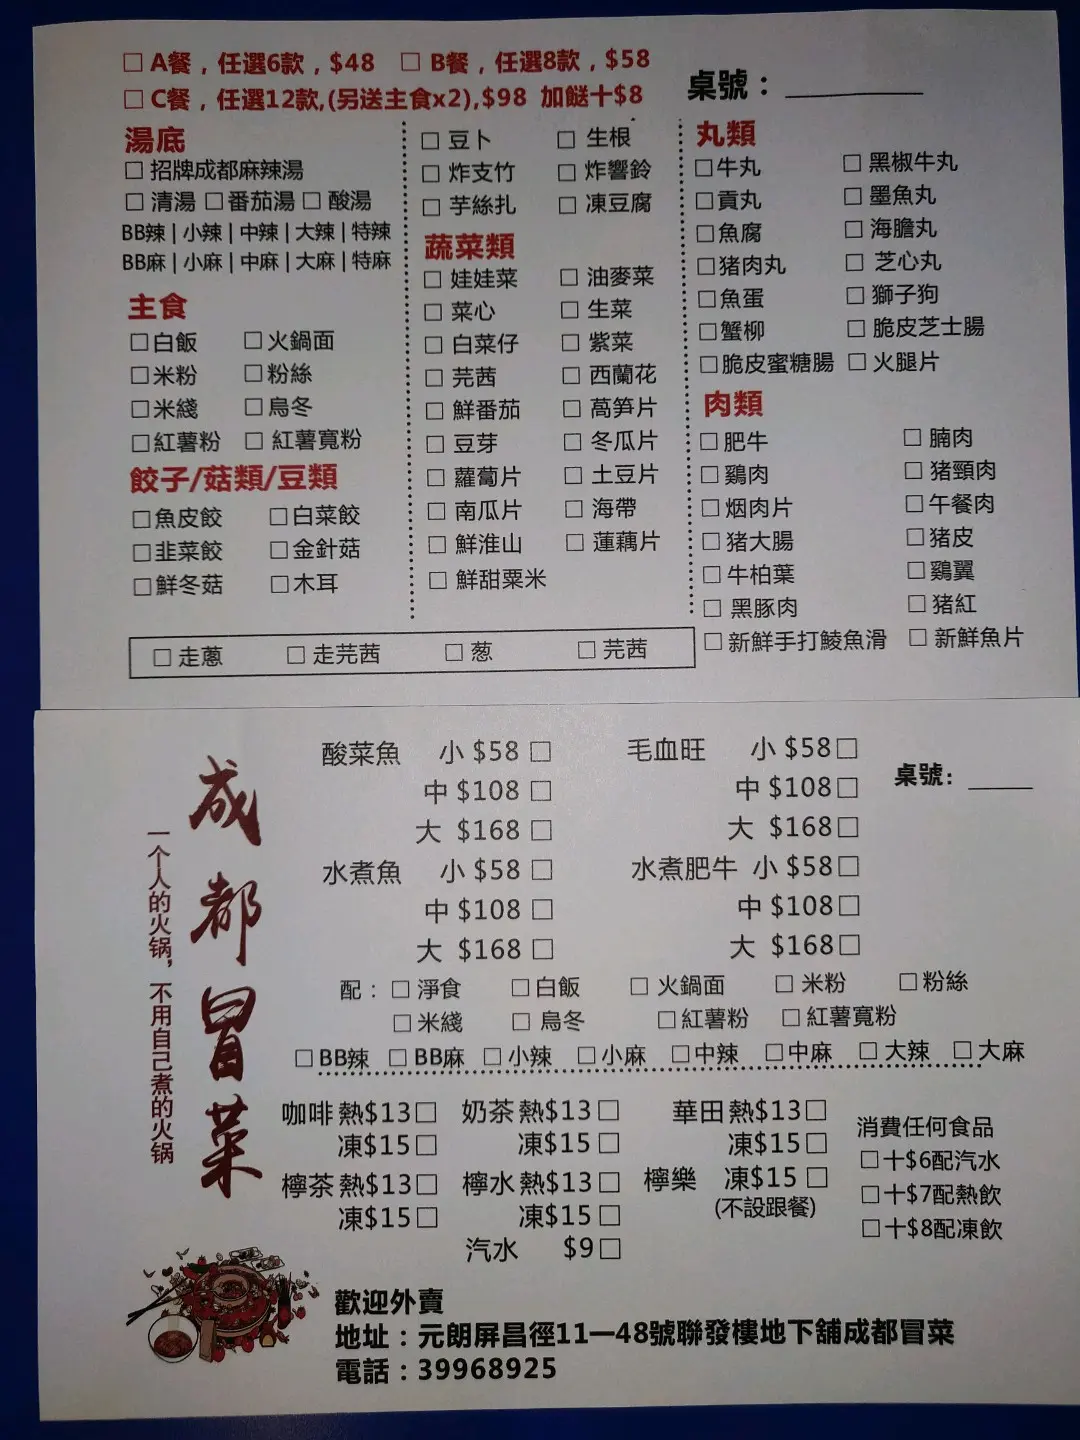 □ A餐，任選6款，$48 □ B餐，任選8款，$58
□ C餐，任選12款,(另送主食x2),$98 加餸十$8
桌號：
湯底
□ 招牌成都麻辣湯
□ 清湯 □ 番茄湯 □ 酸湯
BB辣 | 小辣 | 中辣 | 大辣 | 特辣
BB麻 | 小麻 | 中麻 | 大麻 | 特麻
主食
□ 白飯 □ 火鍋面
□ 米粉 □ 粉絲
□ 米綫 □ 烏冬
□ 紅薯粉 □ 紅薯寬粉
餃子/菇類/豆類
□ 魚皮餃 □ 白菜餃
□ 韭菜餃 □ 金針菇
□ 鮮冬菇 □ 木耳
□ 豆卜 □ 生根
□ 炸支竹 □ 炸響鈴
□ 芋絲扎 □ 凍豆腐
蔬菜類
□ 娃娃菜 □ 油麥菜
□ 菜心 □ 生菜
□ 白菜仔 □ 紫菜
□ 芫茜 □ 西蘭花
□ 鮮番茄 □ 萵笋片
□ 豆芽 □ 冬瓜片
□ 蘿蔔片 □ 土豆片
□ 南瓜片 □ 海帶
□ 鮮淮山 □ 蓮藕片
□ 鮮甜粟米
丸類
□ 牛丸 □ 黑椒牛丸
□ 貢丸 □ 墨魚丸
□ 魚腐 □ 海膽丸
□ 猪肉丸 □ 芝心丸
□ 魚蛋 □ 獅子狗
□ 蟹柳 □ 脆皮芝士腸
□ 脆皮蜜糖腸 □ 火腿片
肉類
□ 肥牛 □ 腩肉
□ 鷄肉 □ 猪頸肉
□ 烟肉片 □ 午餐肉
□ 猪大腸 □ 猪皮
□ 牛柏葉 □ 鷄翼
□ 黑豚肉 □ 猪紅
□ 新鮮手打鯪魚滑 □ 新鮮魚片
□ 走蔥 □ 走芫茜 □ 葱 □ 芫茜
成都冒菜
一个人的火锅，不用自己煮的火锅
酸菜魚 小 $58 □ 毛血旺 小 $58 □
中 $108 □ 中 $108 □
大 $168 □ 大 $168 □
桌號：
水煮魚 小 $58 □ 水煮肥牛 小 $58 □
中 $108 □ 中 $108 □
大 $168 □ 大 $168 □
配：□ 淨食 □ 白飯 □ 火鍋面 □ 米粉 □ 粉絲
□ 米綫 □ 烏冬 □ 紅薯粉 □ 紅薯寬粉
□ BB辣 □ BB麻 □ 小辣 □ 小麻 □ 中辣 □ 中麻 □ 大辣 □ 大麻
咖啡 熱$13 □ 奶茶 熱$13 □ 華田 熱$13 □
凍$15 □ 凍$15 □ 凍$15 □
檸茶 熱$13 □ 檸水 熱$13 □ 檸樂 凍$15 □
凍$15 □ 凍$15 □ (不設跟餐)
汽水 $9 □
消費任何食品
□ 十$6配汽水
□ 十$7配熱飲
□ 十$8配凍飲
歡迎外賣
地址：元朗屏昌徑11—48號聯發樓地下舖成都冒菜
電話：39968925